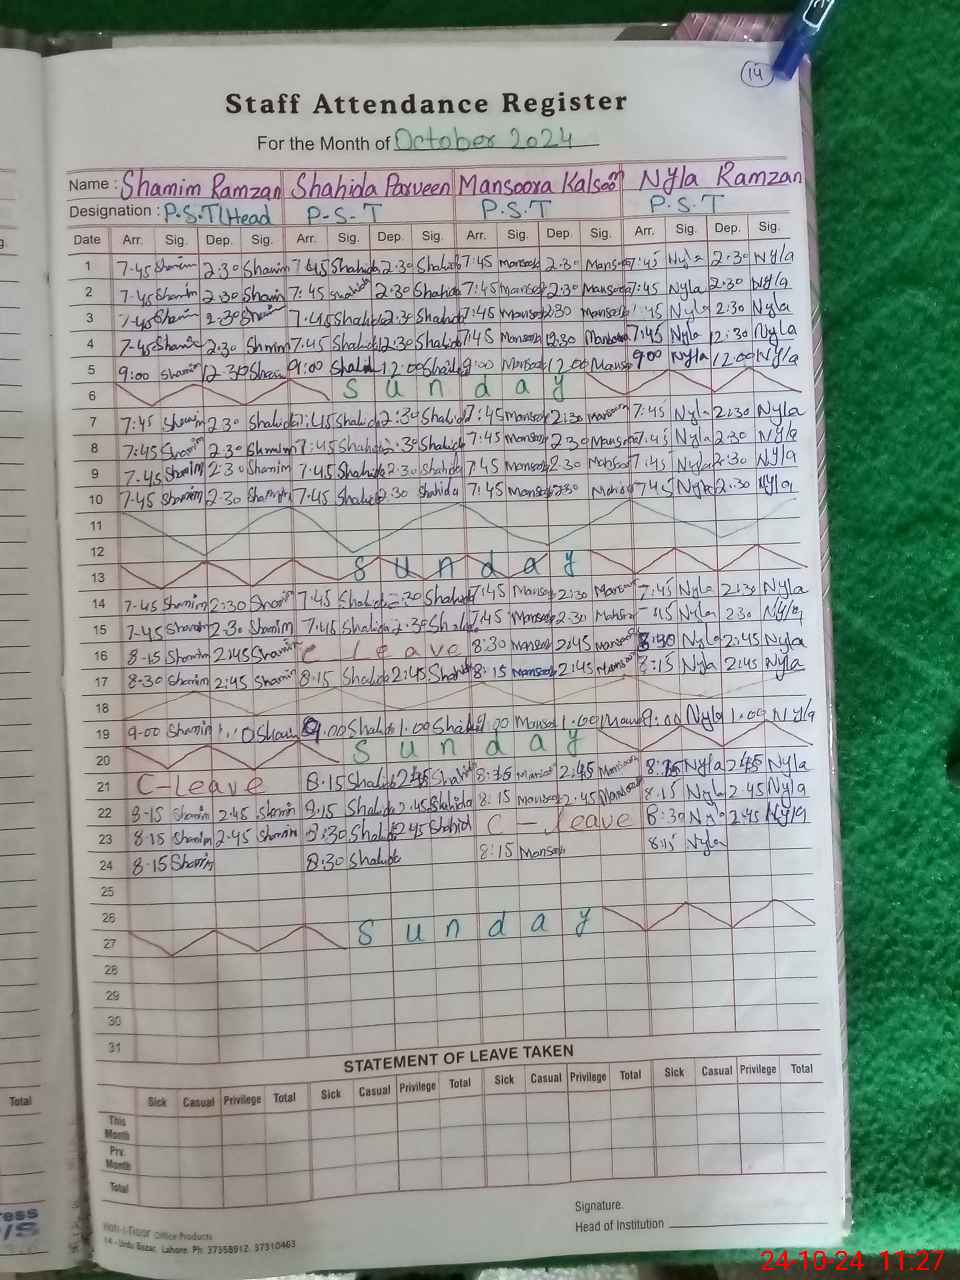 14
Staff Attendance Register
For the Month of October 2024
Name : Shamim Ramzan Shahida Parveen Mansoora Kalsoom Nyla Ramzan
Designation : P.S.T(Head P-S-T P.S.T P.S.T
Date Arr. Sig. Dep. Sig. Arr. Sig. Dep. Sig. Arr. Sig. Dep. Sig. Arr. Sig. Dep. Sig.
1 7-45 Shamim 2:30 Shamim 7:45 Shahida 2:30 Shahida 7:45 Mansoor 2:30 Manso 7:45 Nyla 2:30 Nyla
2 7-45 Shamim 2:30 Shamim 7:45 Shahida 2:30 Shahida 7:45 Mansoor 2:30 Mansoor 7:45 Nyla 2:30 Nyla
3 7-45 Shamim 2:30 Shamim 7:45 Shahida 2:30 Shahida 7:45 Mansoor 2:30 Mansoor :45 Nyla 2:30 Nyla
4 7-45 Shamim 2:30 Shamim 7:45 Shahida 12:30 Shahida 7:45 Mansoor 12:30 Mansoora 7:45 Nyla 12:30 Nyla
5 9:00 Shamim 12:30 Sham 9:00 Shahid 12:00 Shahid 9:00 Mansoor 12:00 Manso 9:00 Nyla 12:00 Nyla
6 Sunday
7 7:45 Shamim 2:30 Shahida 7:45 Shahida 2:30 Shahida 7:45 Mansoor 2:30 Mansoor 7:45 Nyla 2:30 Nyla
8 7:45 Shamim 2:30 Shamim 7:45 Shahida 2:30 Shahida 7:45 Mansoor 2:30 Mansoor 7:45 Nyla 2:30 Nyla
9 7-45 Shamim 2:30 Shamim 7:45 Shahida 2:30 Shahida 7:45 Mansoor 2:30 Mansoor 7:45 Nyla 2:30 Nyla
10 7-45 Shamim 2:30 Shamim 7:45 Shahida 2:30 Shahida 7:45 Mansoor 2:30 7:45 Nyla 2:30 Nyla
11
12
13 Sunday
14 7-45 Shamim 2:30 Shamim 7:45 Shahida 2:30 Shahida 7:45 Mansoor 2:30 Mansoor 7:45 Nyla 2:30 Nyla
15 7-45 Shamim 2:30 Shamim 7:45 Shahida 2:30 Shahida 7:45 Mansoor 2:30 7:45 Nyla 2:30 Nyla
16 8-15 Shamim 2:45 Shamim C leave 8:30 Mansoor 2:45 Mansoor 8:30 Nyla 2:45 Nyla
17 8-30 Shamim 2:45 Shamim 8:15 Shahida 2:45 Shahida 8:15 Mansoor 2:45 Mansoor 8:15 Nyla 2:45 Nyla
18
19 9-00 Shamim 1:00 Sham 9:00 Shahida 1:00 Shahida 9:00 Mansoor 1:00 Manso 9:00 Nyla 1:00 Nyla
20 Sunday
21 C-Leave 8:15 Shahida 2:45 Shahida 8:15 Mansoor 2:45 Mansoor 8:15 Nyla 2:45 Nyla
22 8-15 Shamim 2:45 Shamim 8:15 Shahida 2:45 Shahida 8:15 Mansoor 2:45 Mansoor 8:15 Nyla 2:45 Nyla
23 8:15 Shamim 2-45 Shamim 8:30 Shahida 2:45 Shahid C-leave 8:30 Nyla 2:45 Nyla
24 8-15 Shamim 8:30 Shahida 8:15 Mansoor 8:15 Nyla
25
26
27 Sunday
28
29
30
31
STATEMENT OF LEAVE TAKEN
Sick Casual Privilege Total Sick Casual Privilege Total Sick Casual Privilege Total Sick Casual Privilege Total
Total
This Month
Prv. Month
Total
Signature.
Head of Institution
Office Products
14 - Urdu Bazar, Lahore. Ph: 37358912, 37310463
24-10-24 11:27